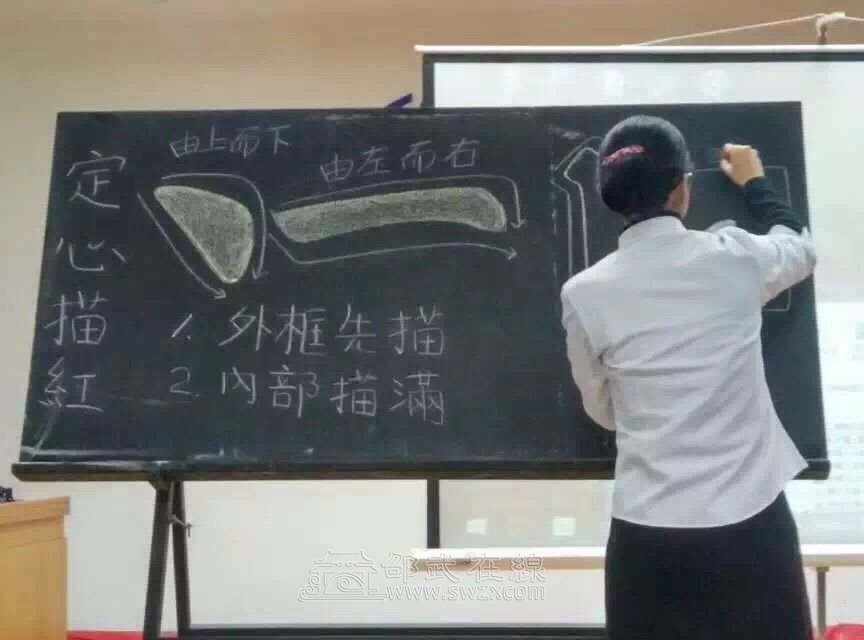 定心描紅
由上而下
由左而右
1. 外框先描
2. 內部描滿
邵武在線
www.swzx.com